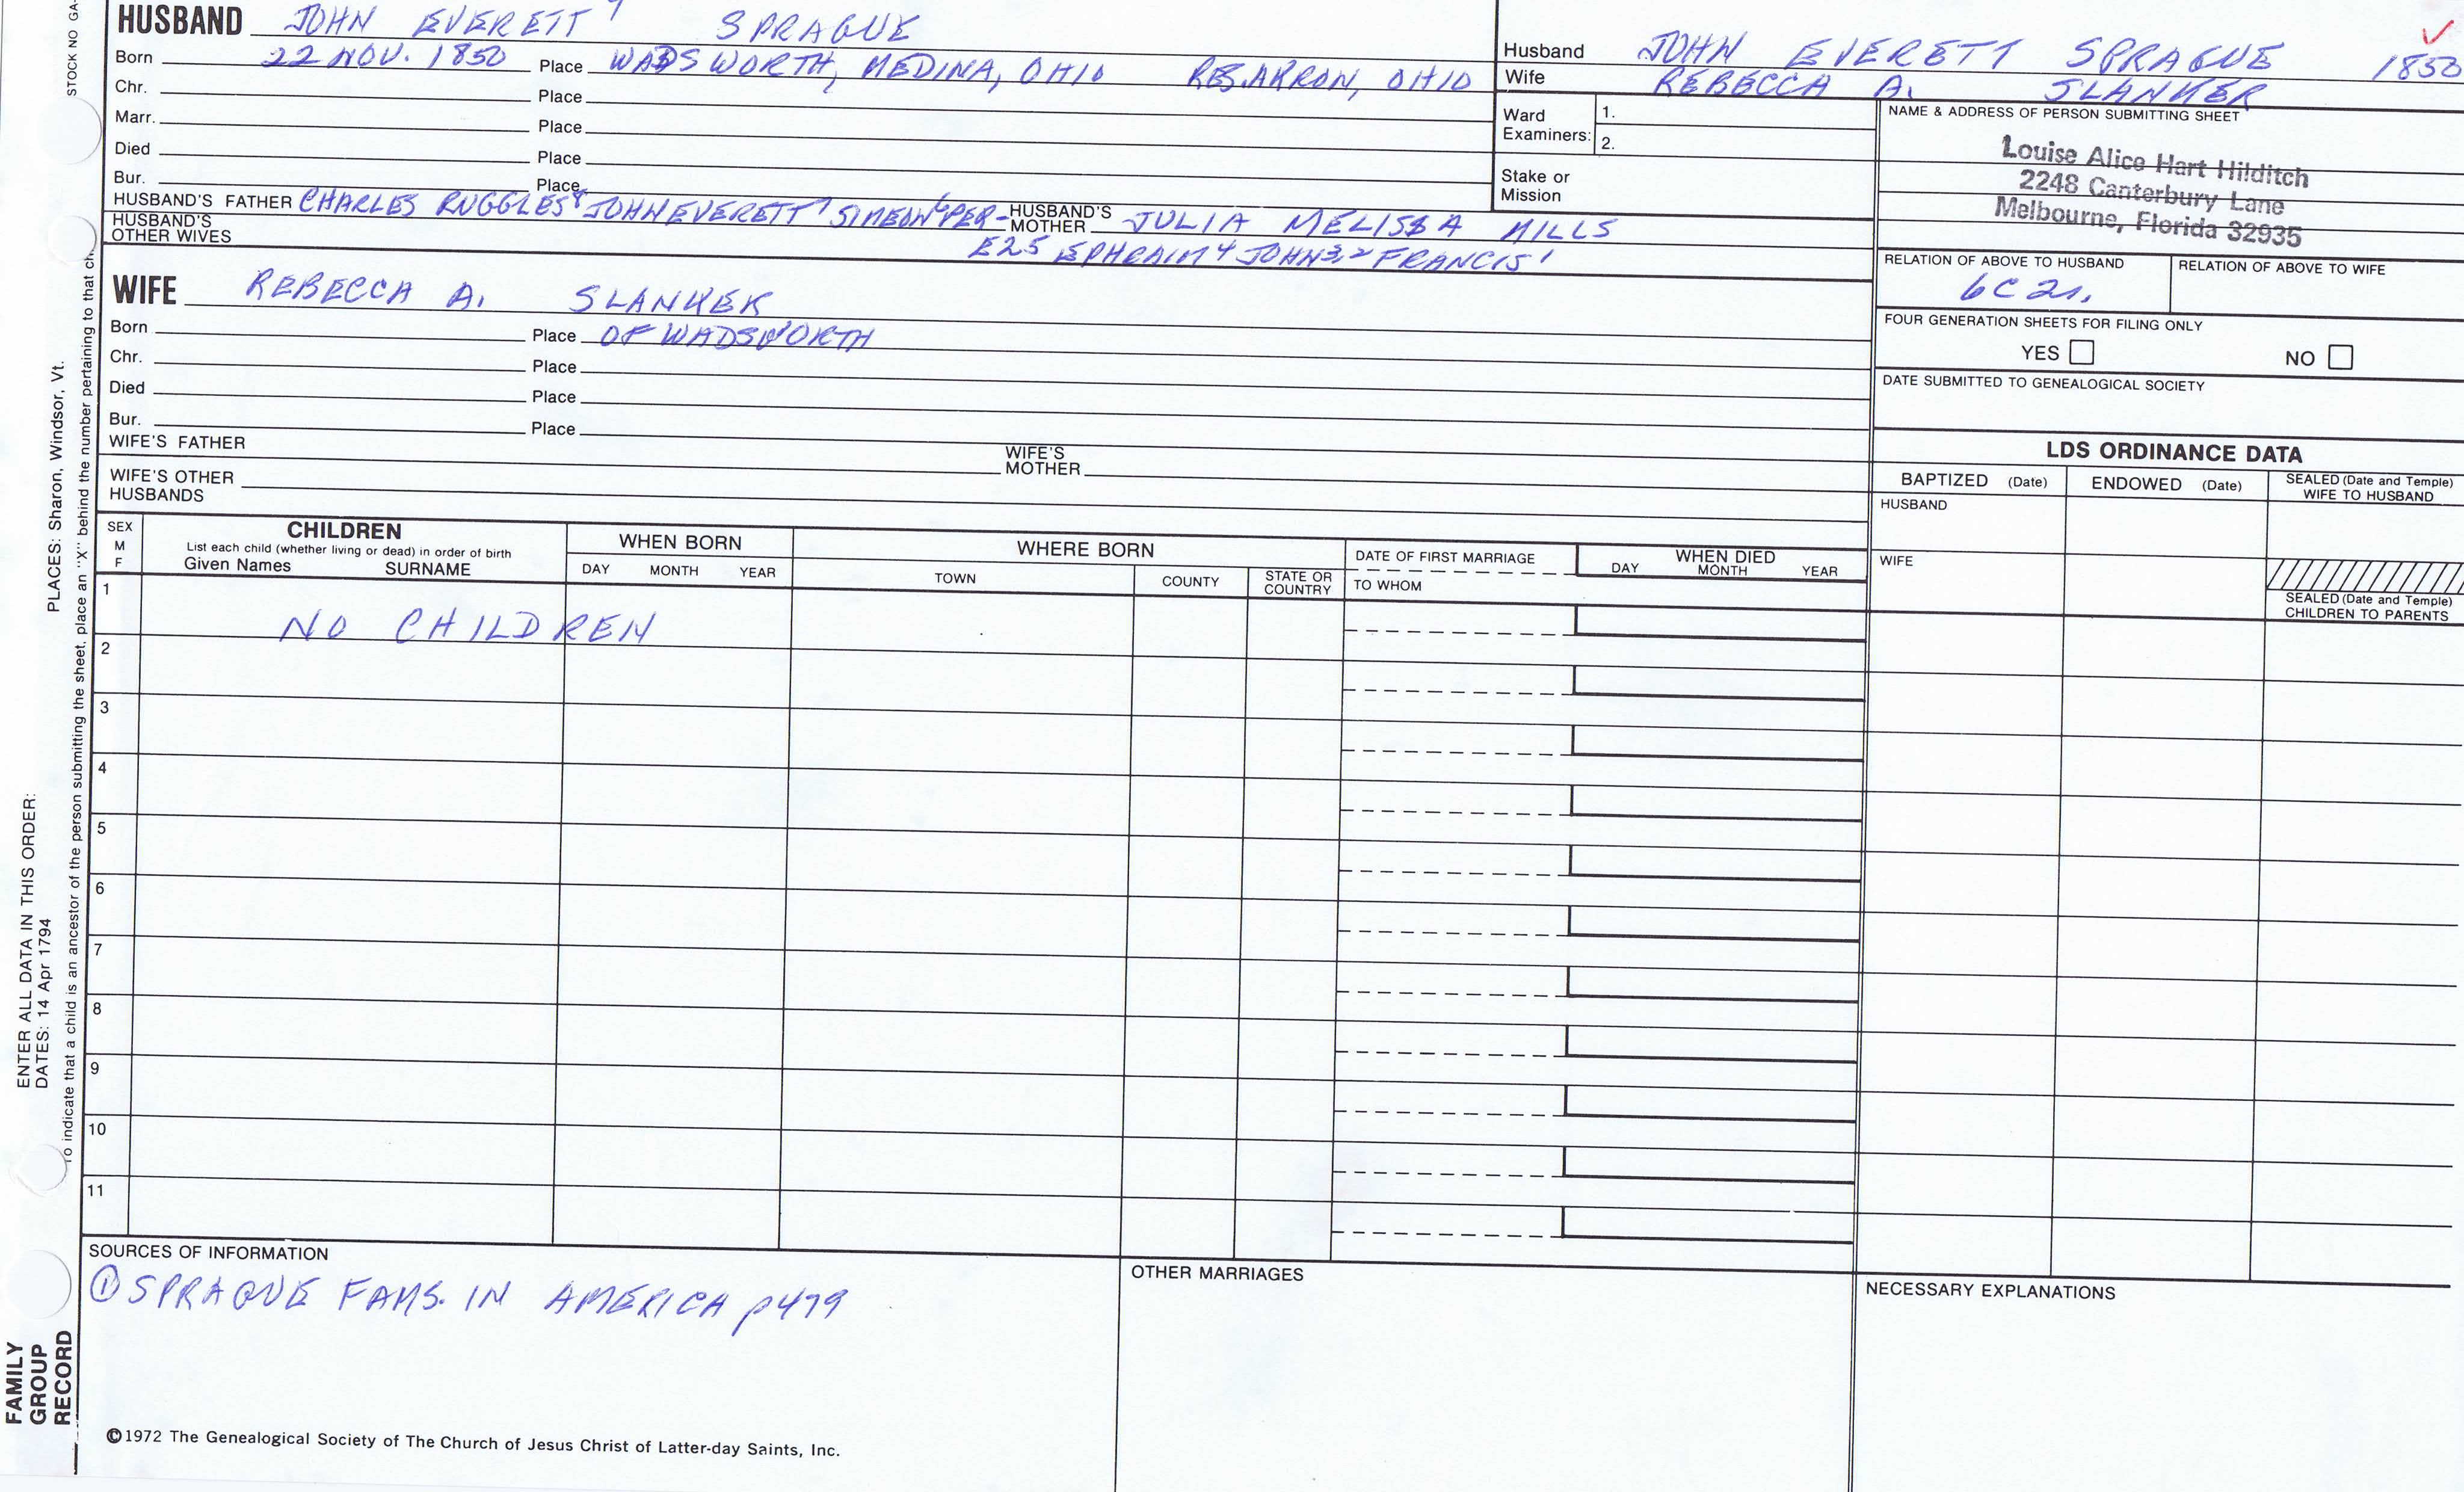 STOCK NO GA-
HUSBAND JOHN EVERETT 9 SPRAGUE
Born 22 NOV. 1850 Place WADSWORTH, MEDINA, OHIO RES. AKRON, OHIO
Chr. Place
Marr. Place
Died Place
Bur. Place
HUSBAND'S FATHER CHARLES RUGGLES 8 JOHN EVERETT 7 SIMEON 6 PER- HUSBAND'S MOTHER JULIA MELISSA MILLS
HUSBAND'S OTHER WIVES EZ 5 EPHRAIM 4 JOHN 3,2 FRANCIS 1
WIFE REBECCA A. SLANKER
Born Place OF WADSWORTH
Chr. Place
Died Place
Bur. Place
WIFE'S FATHER WIFE'S MOTHER
WIFE'S OTHER HUSBANDS
Husband JOHN EVERETT SPRAGUE 1850
Wife REBECCA A. SLANKER
Ward Examiners: 1.
2.
Stake or Mission
NAME & ADDRESS OF PERSON SUBMITTING SHEET
Louise Alice Hart Hilditch
2248 Canterbury Lane
Melbourne, Florida 32935
RELATION OF ABOVE TO HUSBAND RELATION OF ABOVE TO WIFE
6C 2r.
FOUR GENERATION SHEETS FOR FILING ONLY
YES NO
DATE SUBMITTED TO GENEALOGICAL SOCIETY
LDS ORDINANCE DATA
BAPTIZED (Date) ENDOWED (Date) SEALED (Date and Temple) WIFE TO HUSBAND
HUSBAND
WIFE
SEALED (Date and Temple) CHILDREN TO PARENTS
SEX M F
CHILDREN
List each child (whether living or dead) in order of birth
Given Names SURNAME
WHEN BORN
DAY MONTH YEAR
WHERE BORN
TOWN COUNTY STATE OR COUNTRY
DATE OF FIRST MARRIAGE
TO WHOM
WHEN DIED
DAY MONTH YEAR
1 NO CHILDREN
2
3
4
5
6
7
8
9
10
11
SOURCES OF INFORMATION
① SPRAGUE FAMS. IN AMERICA p479
OTHER MARRIAGES
NECESSARY EXPLANATIONS
©1972 The Genealogical Society of The Church of Jesus Christ of Latter-day Saints, Inc.
FAMILY
GROUP
RECORD
ENTER ALL DATA IN THIS ORDER:
DATES: 14 Apr 1794 PLACES: Sharon, Windsor, Vt.
To indicate that a child is an ancestor of the person submitting the sheet, place an "X" behind the number pertaining to that ch